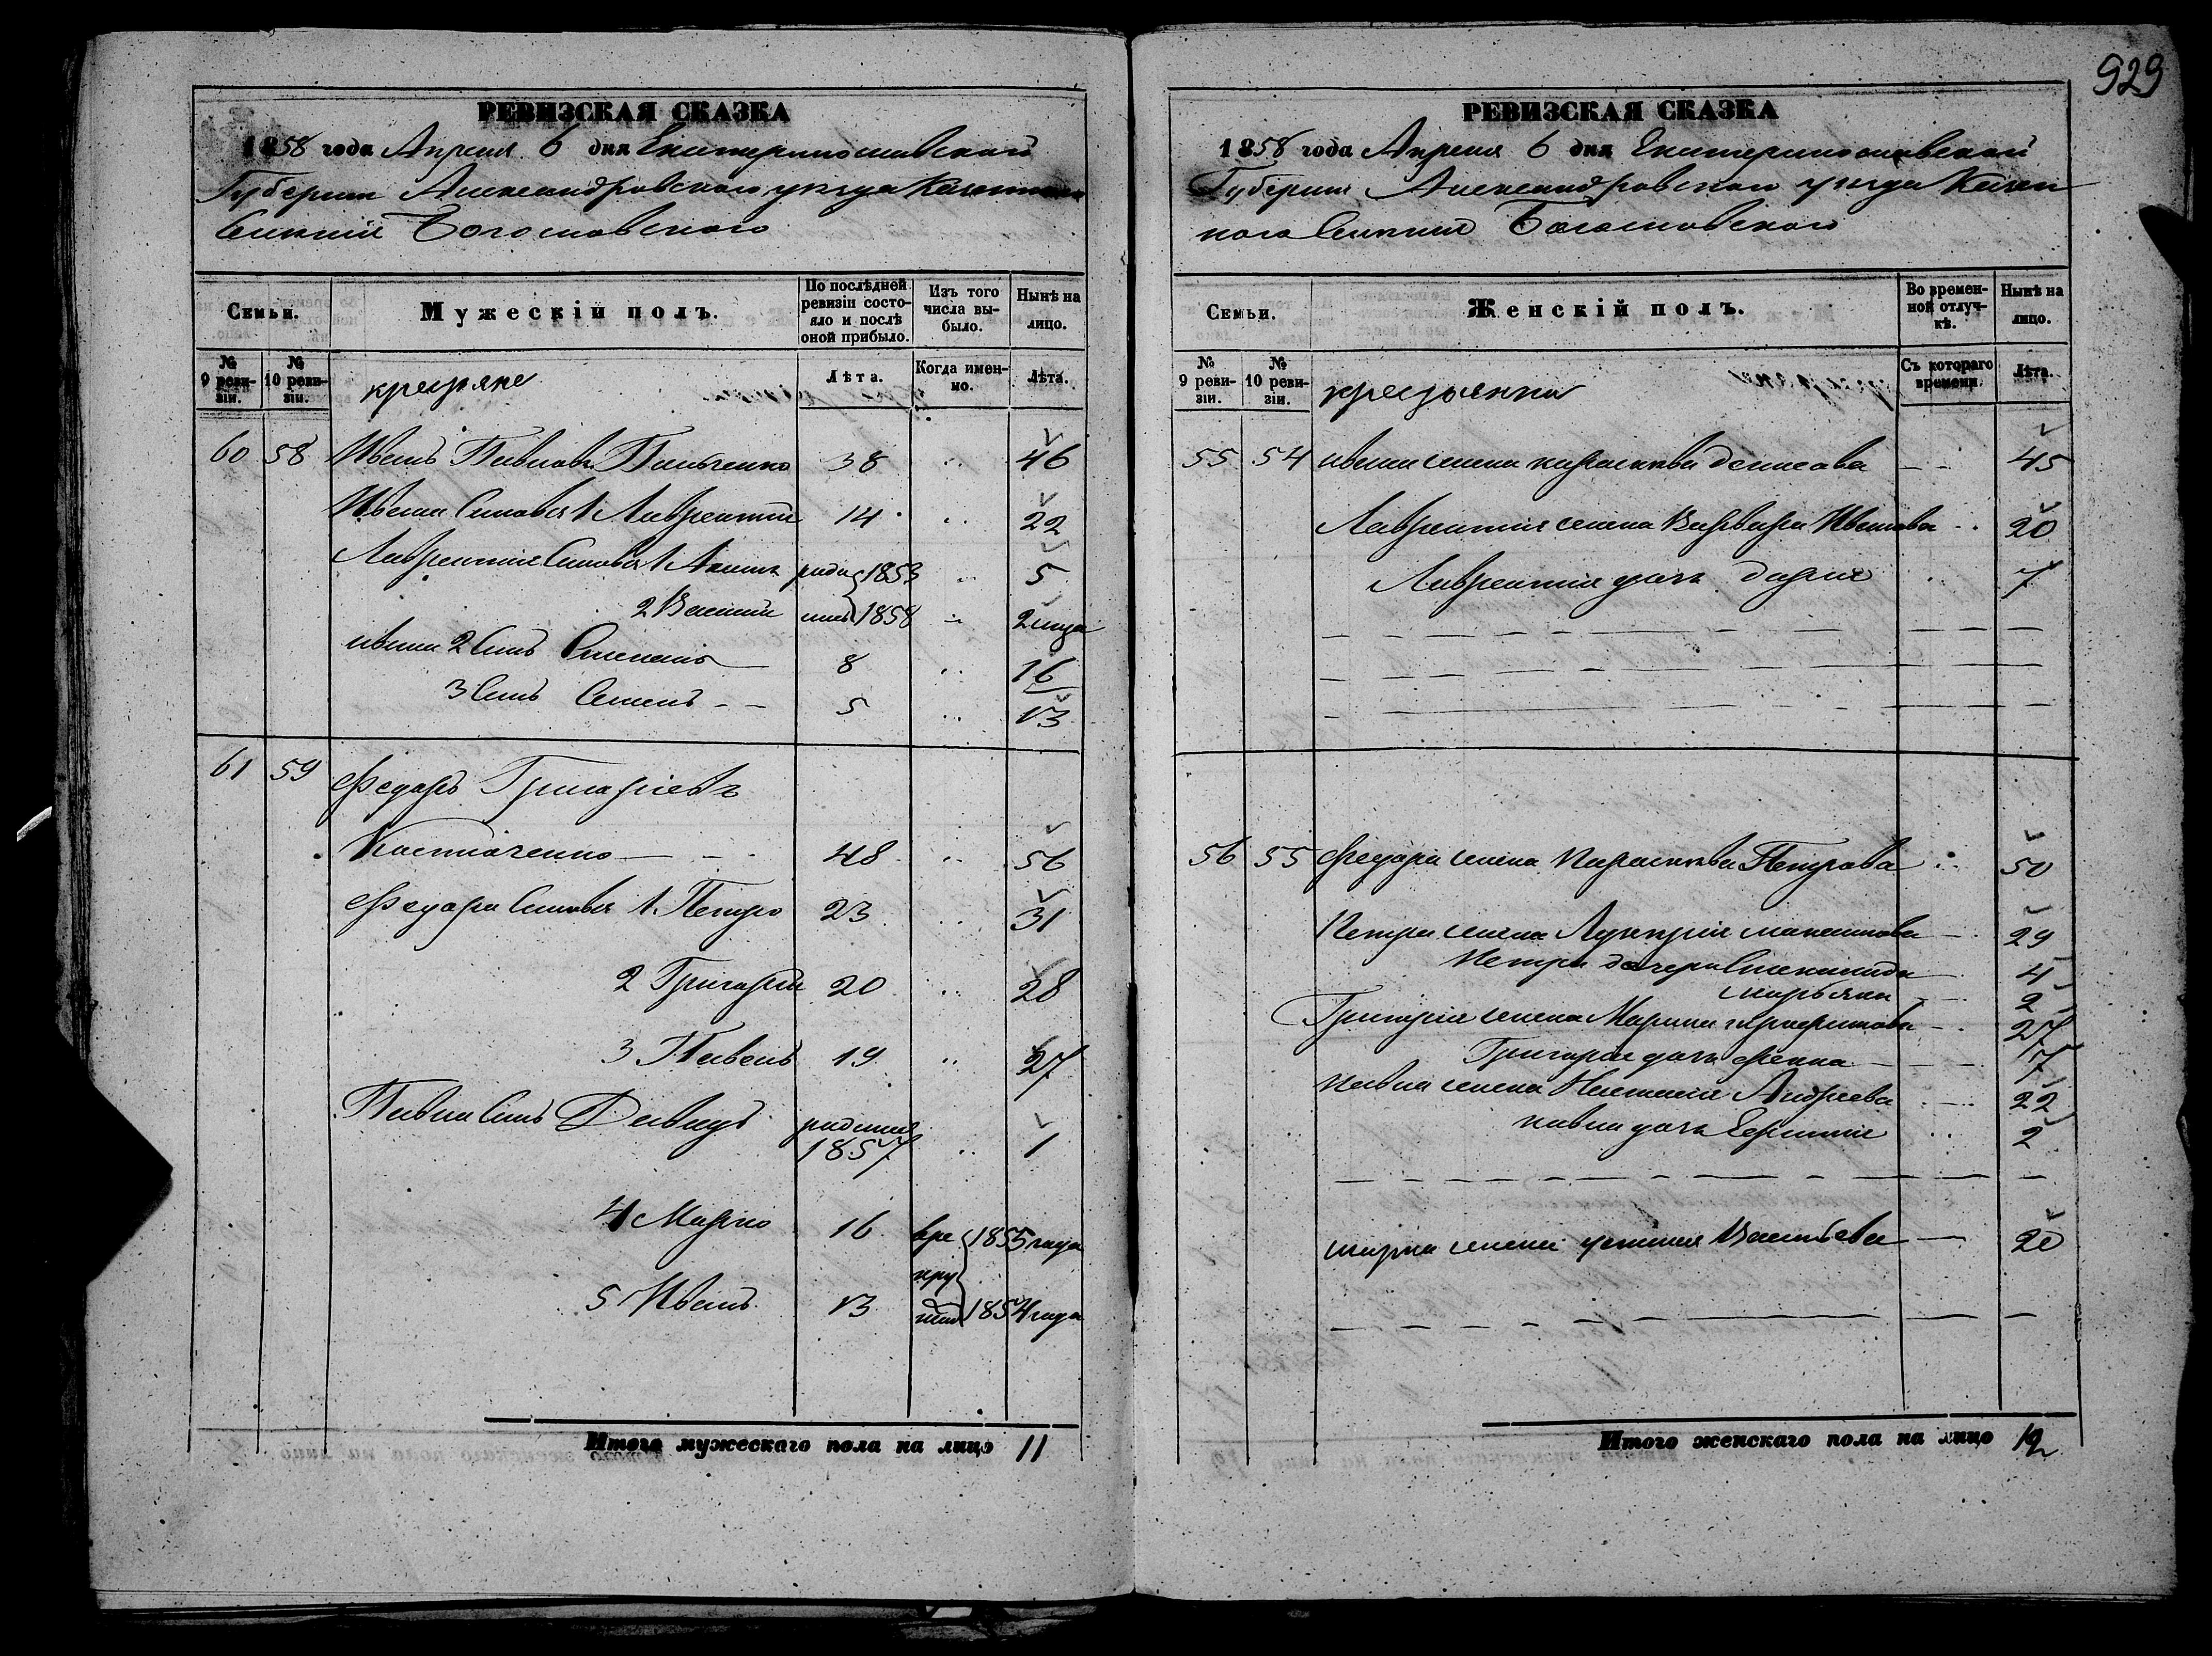 929
РЕВИЗСКАЯ СКАЗКА
1858 года Апреля 6 дня Екатеринославской
Губернии Александровского уезда Казенного
Селенія Богословского
Семьи.
Мужескій полъ.
По послѣдней ревизіи состояло и послѣ оной прибыло.
Изъ того числа выбыло.
Нынѣ на лицо.
№ 9 ревизіи.
№ 10 ревизіи.
крестьяне
Лѣта.
Когда именно.
Лѣта.
60 58 Иванъ Павловъ 38 " 46
Ивана Сыновья 1 Лаврентій 14 " 22
Лаврентія Сыновья 1 роди 1853 " 5
2 Василій лись 1858 " 2 мца
ивана 2 Сынъ Степанъ 8 " 16
3 Сынъ Семенъ 5 " 13
61 59 Федоръ Григорьевъ
Костюченко 48 " 56
Федора Сыновья 1 Петро 23 " 31
2 Григорій 20 " 28
3 Павелъ 19 " 27
Павла Сынъ Давидъ родился 1857 " 1
4 Марко 16 1855 года
5 Иванъ 13 1854 года
Итого мужескаго пола на лицо 11
РЕВИЗСКАЯ СКАЗКА
1858 года Апреля 6 дня Екатеринославской
Губернии Александровского уезда Казен
ного Селенія Богословского
Семьи.
Женскій полъ.
Во временной отлучкѣ.
Нынѣ на лицо.
№ 9 ревизіи.
№ 10 ревизіи.
крестьянки
Съ котораго времени.
Лѣта.
55 54 ивана жена параскева денисова 45
Лаврентія жена Варвара Иванова 20
Лаврентія дочь дарья 7
56 55 Федора жена Параскева Петрова 50
Петра жена Лукерія максимова 29
Петра дочери Степанида 4
марьяна 2
Григорія жена Марина 27
Григорія дочь 7
павла жена Настасія Андреева 22
павла дочь 2
марка жена устинія Васильева 20
Итого женскаго пола на лицо 12